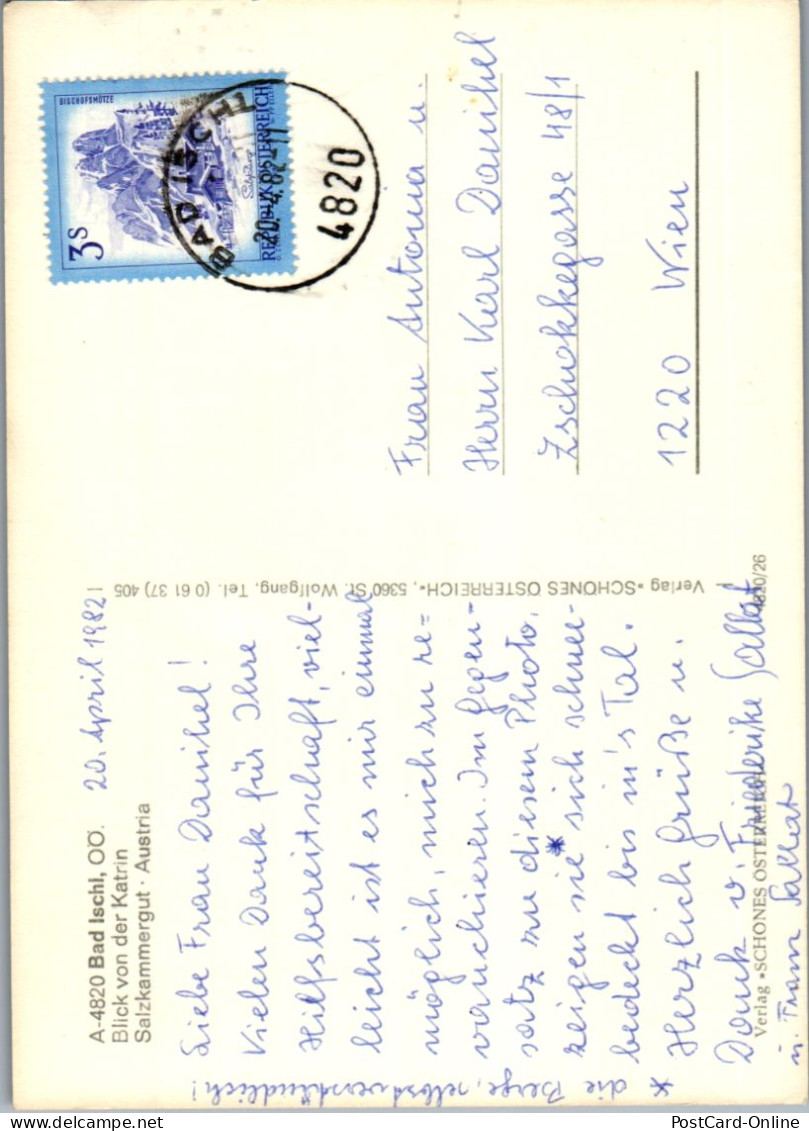 A-4820 Bad Ischl, OÖ.
Blick von der Katrin
Salzkammergut · Austria
20. April 1982
Liebe Frau Danihel!
Vielen Dank für Ihre
Hilfsbereitschaft, viel-
leicht ist es mir einmal
möglich, mich zu re-
vanchieren. Im Gegen-
satz zu diesem Photo,
zeigen sie * sich schnee-
bedeckt bis in's Tal.
Herzlich Grüße u.
Dank v. Friederike Sallat
u. Franz Sallat
* die Berge, selbstverständlich!
Verlag »SCHÖNES ÖSTERREICH«
Verlag »SCHÖNES ÖSTERREICH«, 5360 St. Wolfgang, Tel. (0 61 37) 405
4820/26
BISCHOFSMÜTZE
3S
REPUBLIK ÖSTERREICH
Salzburg
BAD ISCHL
20.-4.82-11
4820
Frau Antonia u.
Herrn Karl Danihel
Zschokkegasse 48/1
1220 Wien
PostCard-Online
PostCard-Online.com